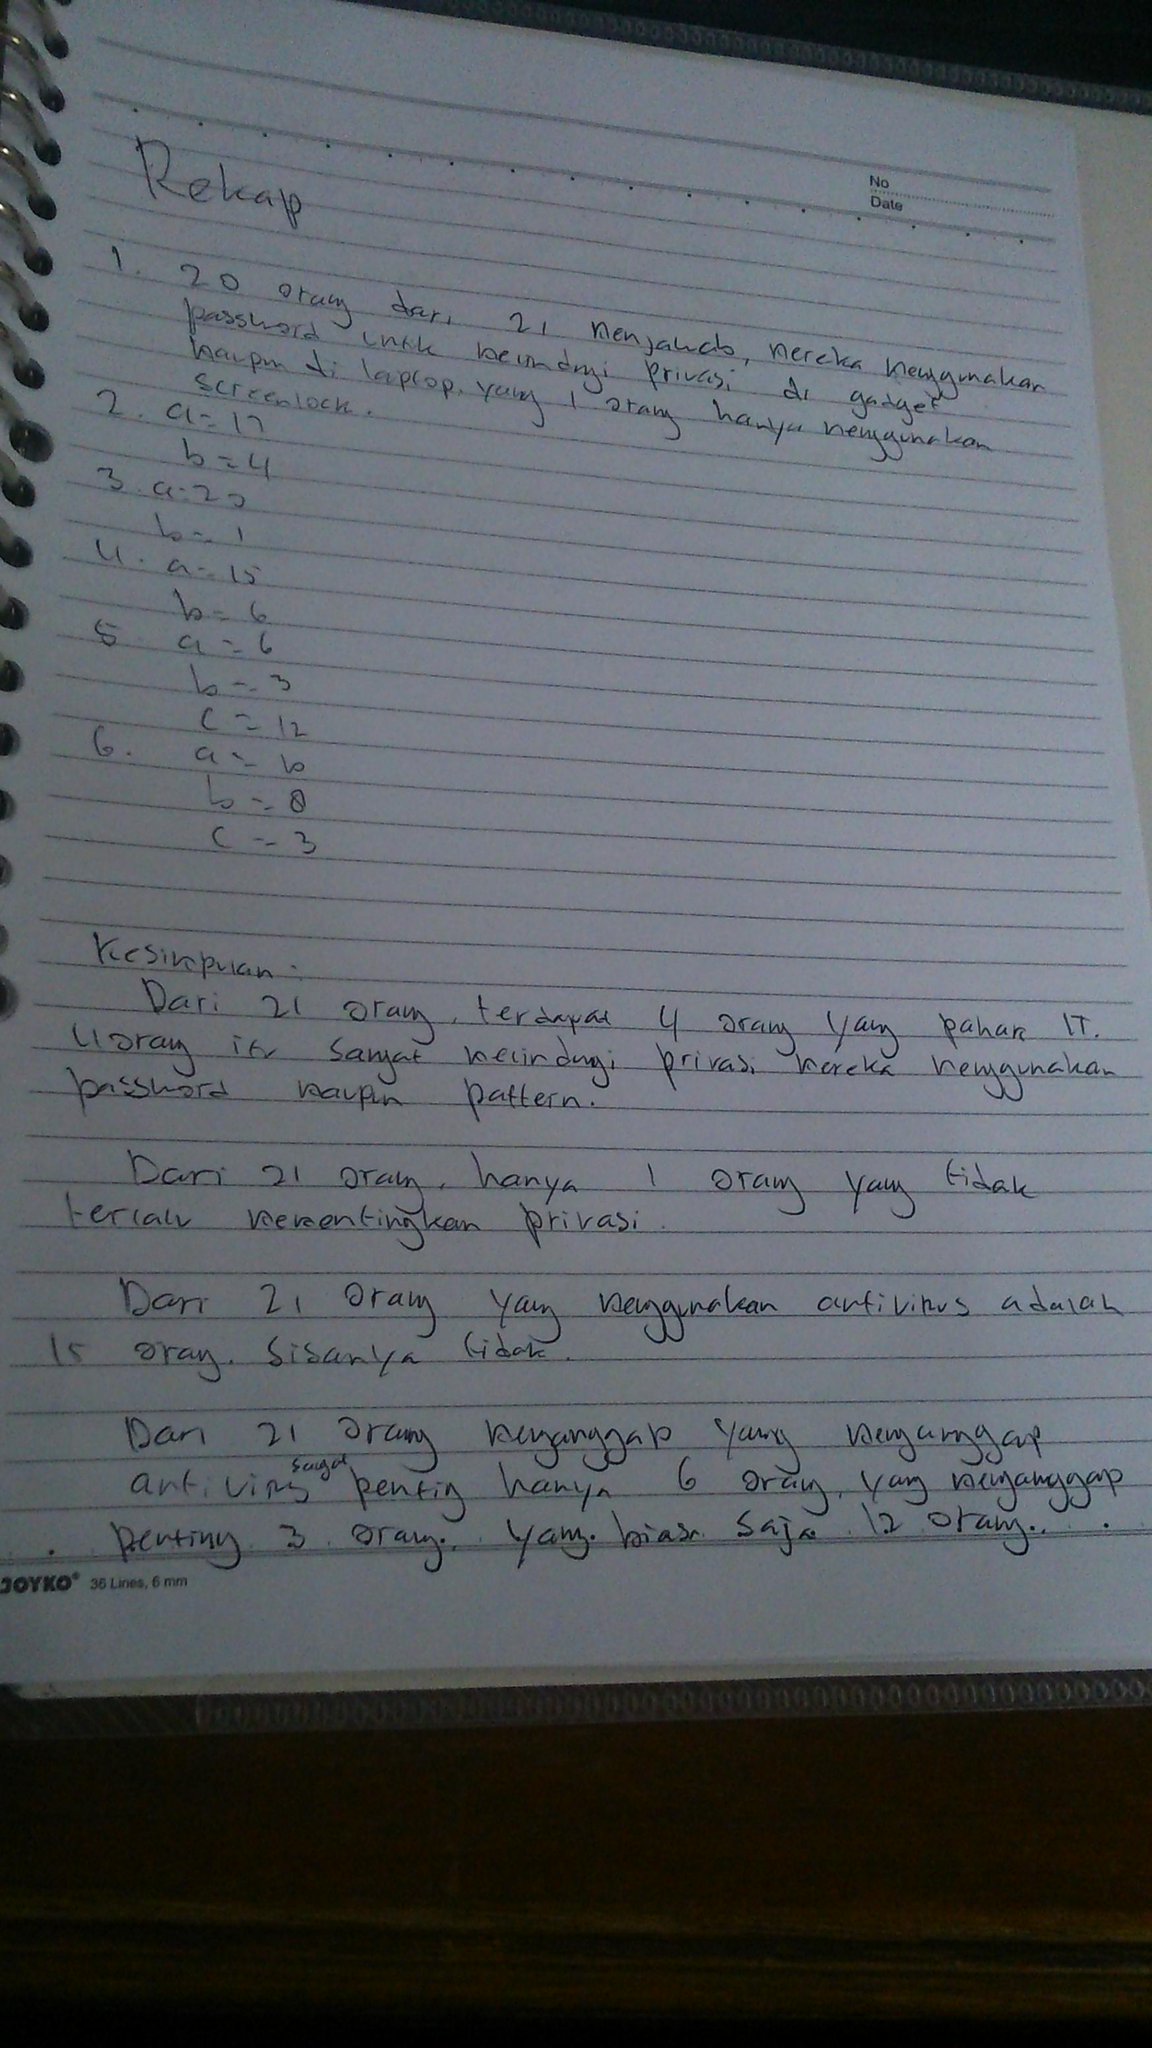 No
Date
Rekap
1. 20 orang dari 21 menjawab, mereka menggunakan
password untk melindngi privasi di gadget
maupn di laptop, yang 1 orang hanya menggunakan
screenlock.
2. a = 17
b = 4
3. a = 20
b = 1
4. a = 15
b = 6
5 a = 6
b = 3
c = 12
6. a = 10
b = 8
c = 3
Kesimpulan :
Dari 21 orang, terdapat 4 orang yang paham IT.
4 orang itu sangat melindungi privasi mereka menggunakan
password maupun pattern.
Dari 21 orang, hanya 1 orang yang tidak
terlalu mementingkan privasi.
Dari 21 orang yang menggunakan antivirus adalah
15 orang. Sisanya tidak.
Dari 21 orang menganggap yang menganggap
antivirus sangat penting hanya 6 orang, yang menganggap
penting 3 orang, yang biasa saja 12 orang.
JOYKO® 36 Lines, 6 mm